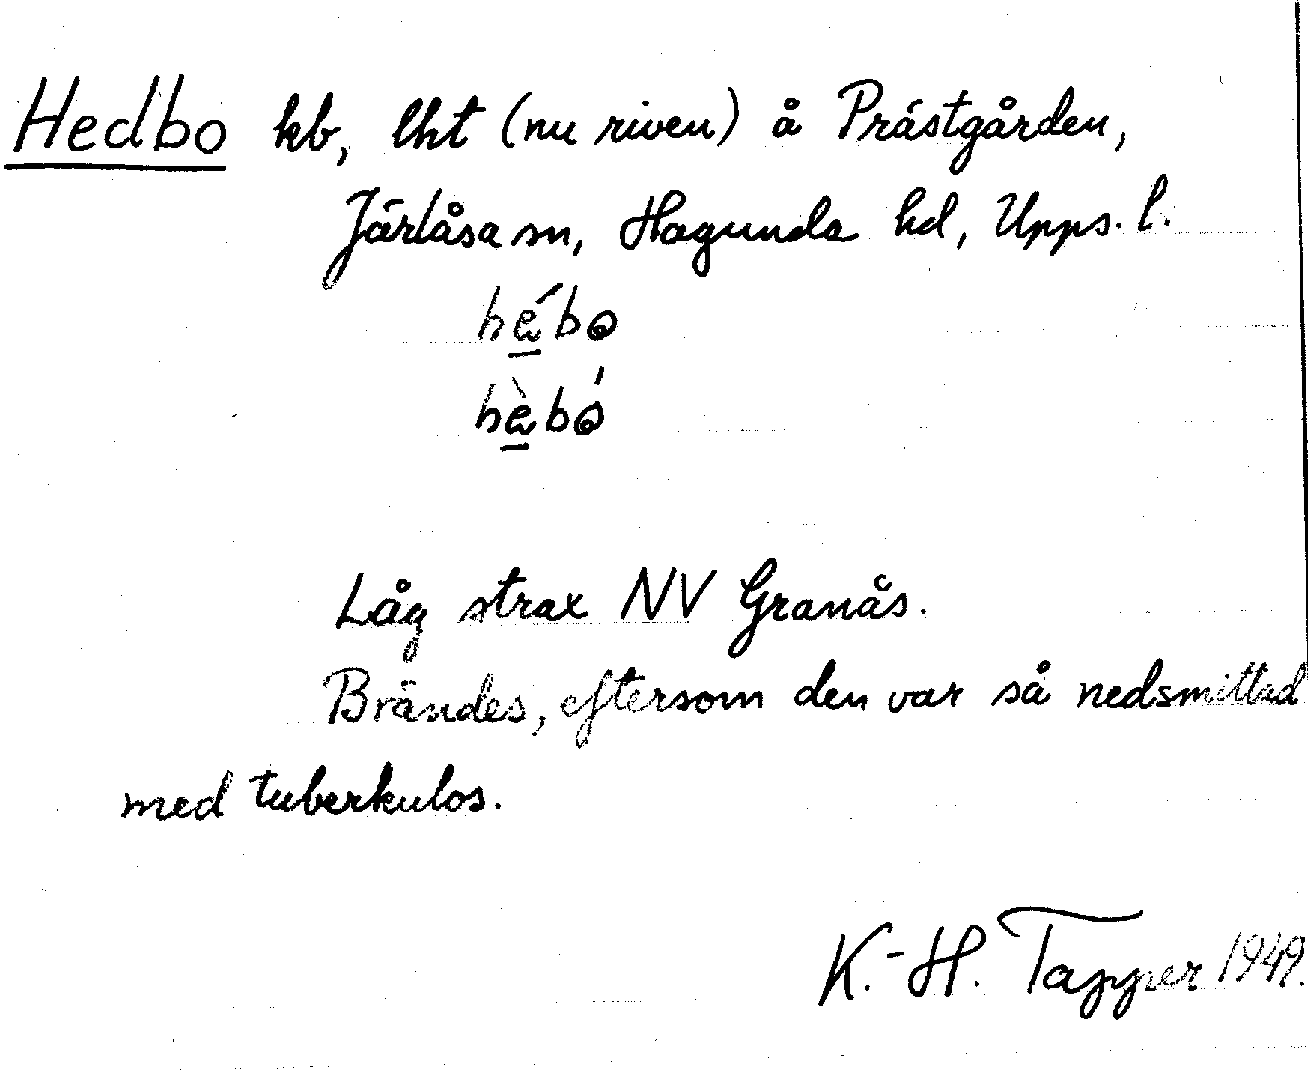 Hedbo kb, lht (nu riven) å Prästgården,
Järlåsa sn, Hagunda hd, Upps. l.
hé̲bo
hè̲bó
Låg strax NV Granås.
Brändes, eftersom den var så nedsmittad
med tuberkulos.
K.-H. Tapper 1949.